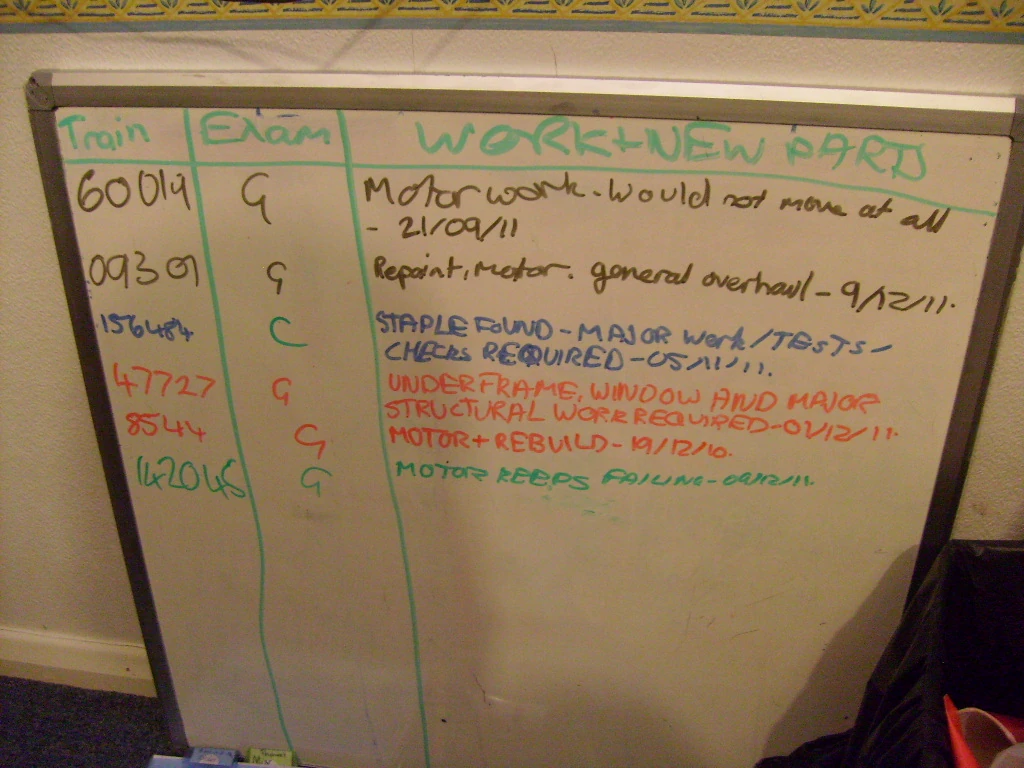 Train Exam WORK+NEW PARTS
60019 G Motor work. Would not move at all
- 21/09/11
09301 G Repaint, Motor. general overhawl - 9/12/11.
156484 C STAPLE FOUND - MAJOR Work/TESTS/
CHECKS REQUIRED - 05/11/11.
47727 G UNDERFRAME, WINDOW AND MAJOR
STRUCTURAL WORK REQUIRED - 01/12/11.
8544 G MOTOR + REBUILD - 19/12/10.
142045 G MOTOR KEEPS FAILING - 09/12/11.